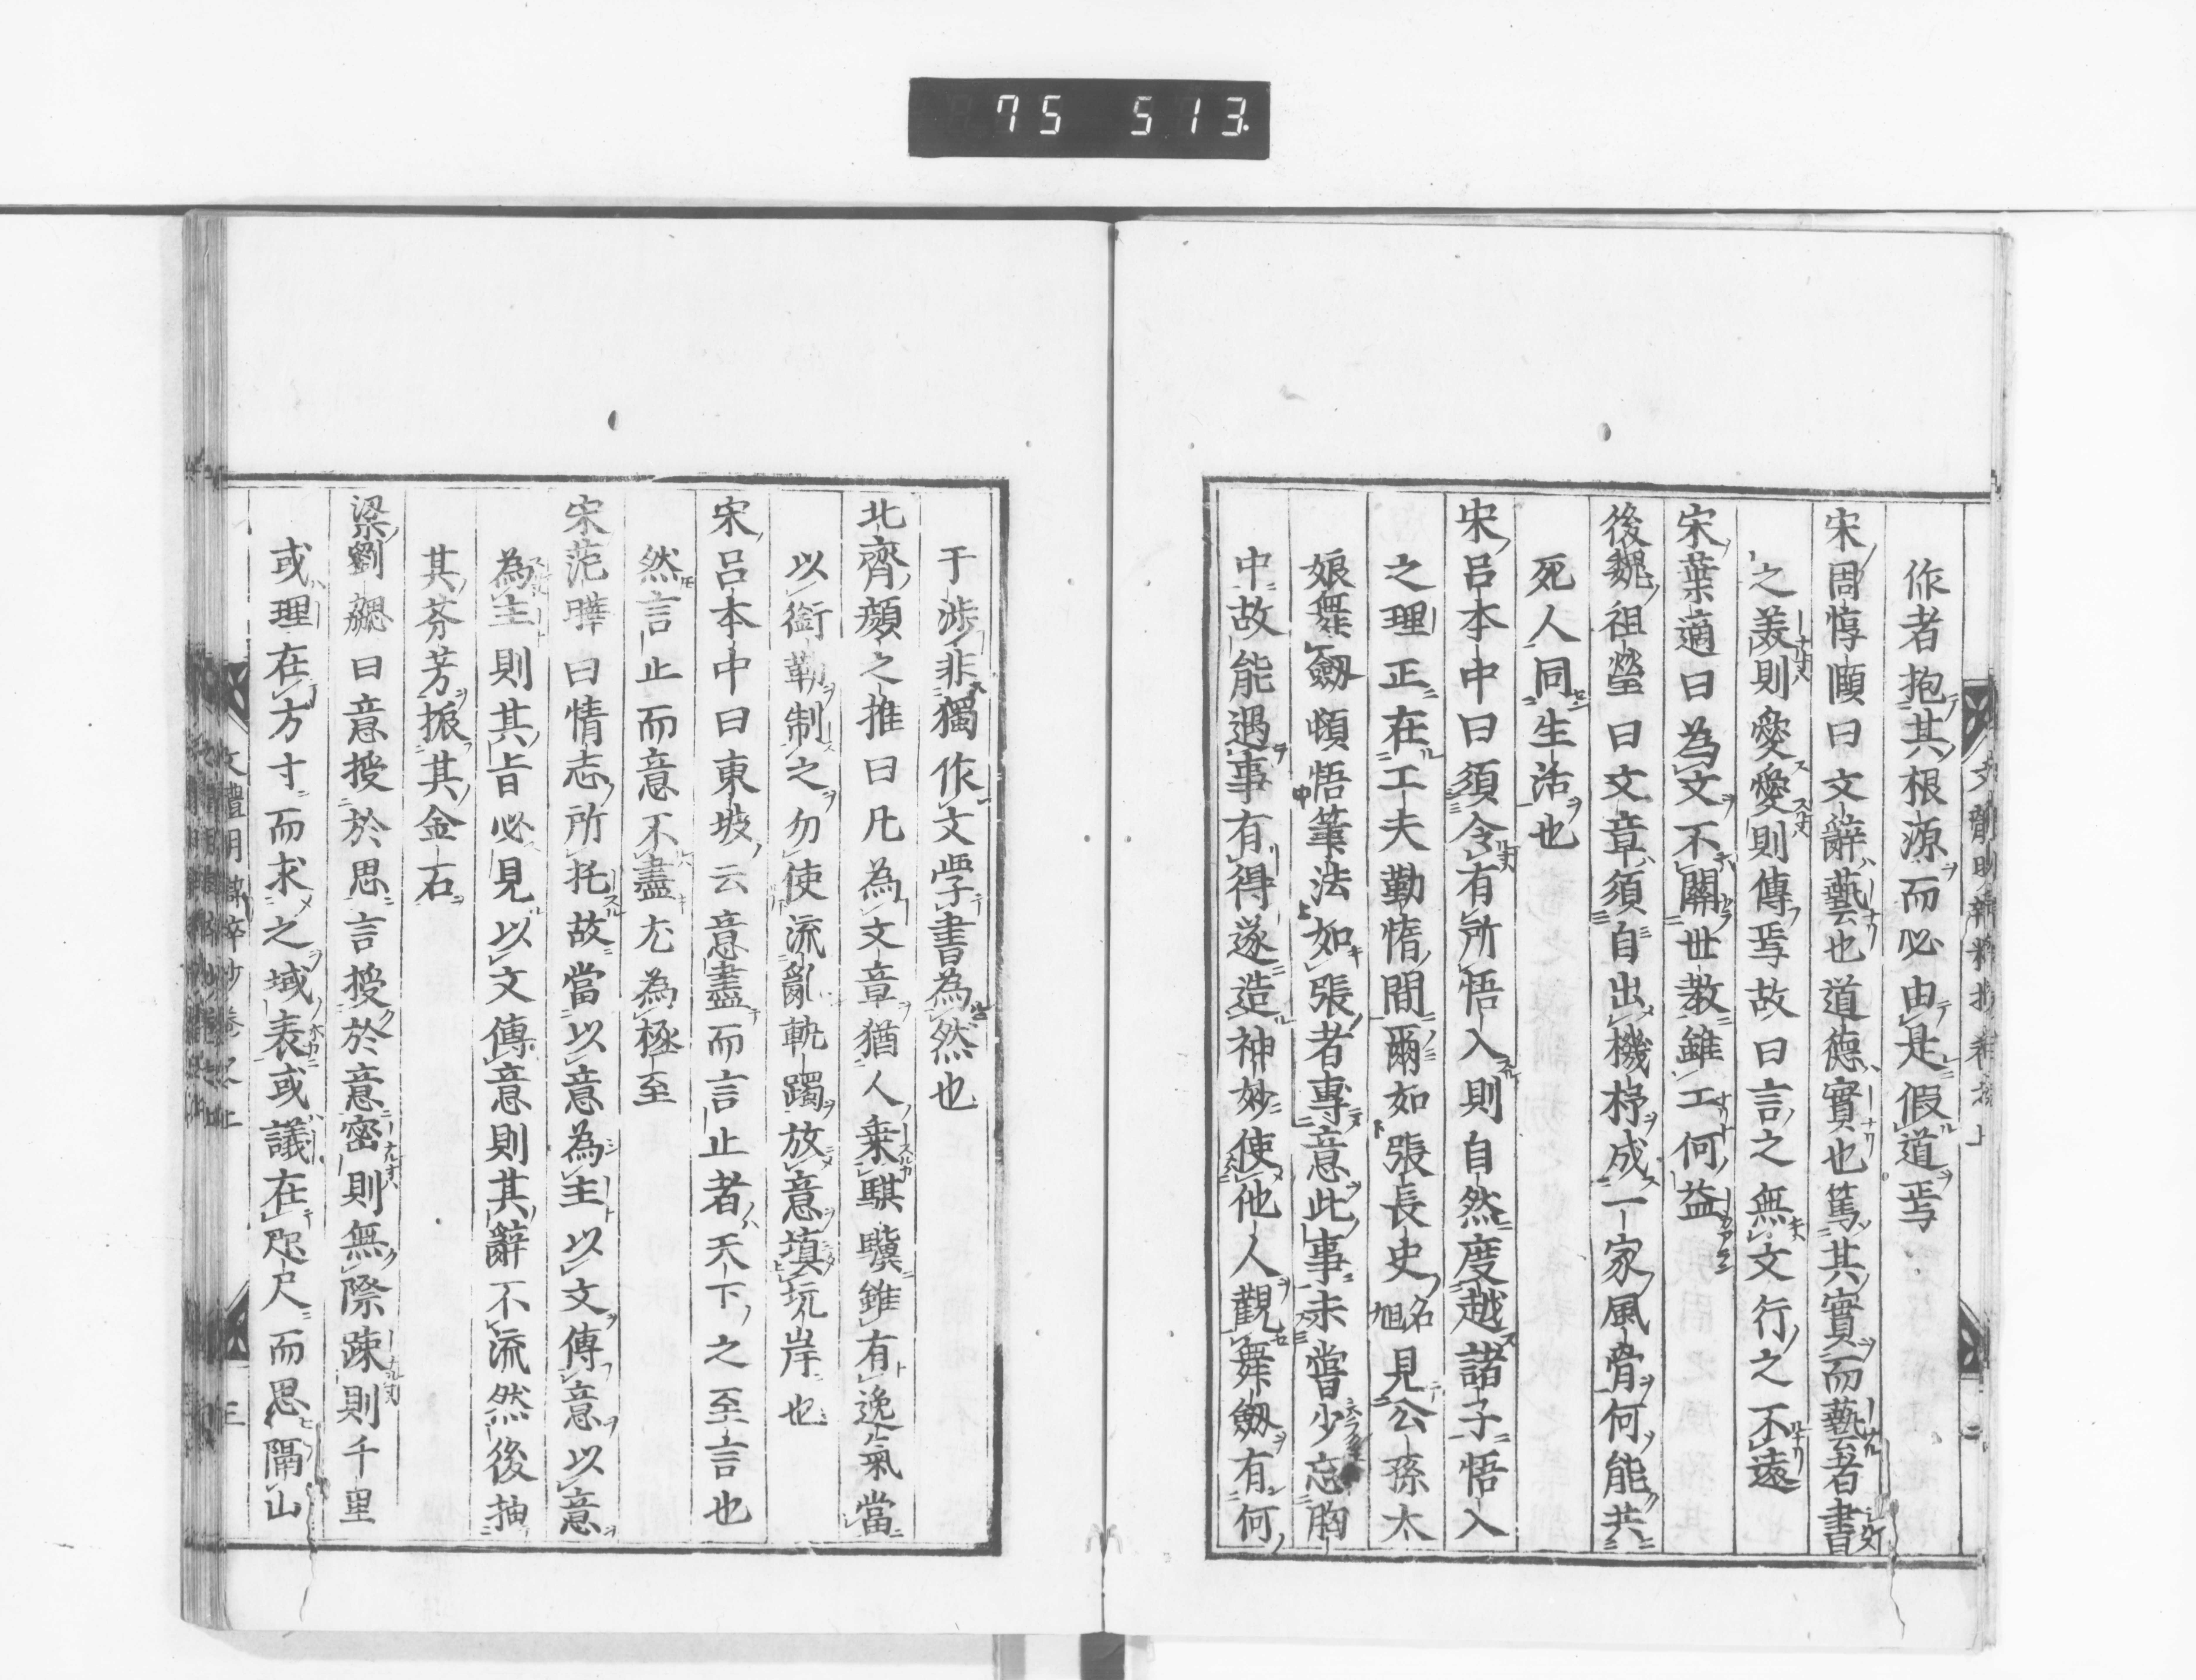 75 513.
作者抱其根源而必由是假道焉
宋周惇頤曰文辭藝也道德實也篤其實而藝者書
之美則愛愛則傳焉故曰言之無文行之不遠
宋葉適曰為文不關世教雖工何益
後魏祖瑩曰文章須自出機杼成一家風骨何能共
死人同生活也
宋呂本中曰須令有所悟入則自然度越諸子悟入
之理正在工夫勤惰間爾如張長史名旭見公孫太
娘舞劔頓悟筆法如張者專意此事未嘗少忘胸
中故能遇事有得遂造神妙使他人觀舞劔有何
于涉非獨作文學書為然也
北齊顔之推曰凡為文章猶人乗騏驥雖有逸氣當
以銜勒制之勿使流亂軌躅放意填坑岸也
宋呂本中曰東坡云意盡而言止者天下之至言也
然言止而意不盡尤為極至
宋范曄曰情志所托故當以意為主以文傳意以意
為主則其旨必見以文傳意則其辭不流然後抽
其芬芳振其金石
梁劉勰曰意授於思言授於意密則無際疎則千里
或理在方寸而求之域表或議在咫尺而思隔山
文體明辯粹抄卷之上
三